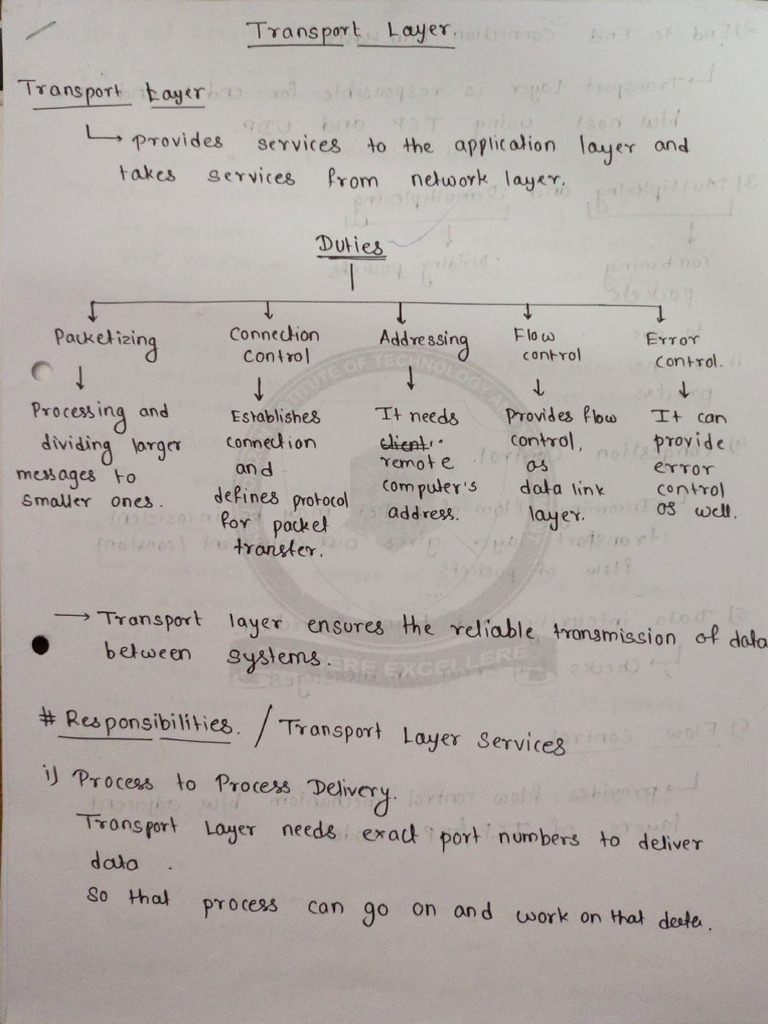 Transport Layer.
Transport Layer
↳ provides services to the application layer and
takes services from network layer.
Duties
Packetizing
Processing and
dividing larger
messages to
smaller ones.
Connection
control
Establishes
connection
and
defines protocol
for packet
transfer.
Addressing
It needs
client
remote
computer's
address.
Flow
control
Provides flow
control,
as
data link
layer.
Error
control.
It can
provide
error
control
as well.
→ Transport layer ensures the reliable transmission of data
between systems.
# Responsibilities. / Transport Layer Services
i) Process to Process Delivery.
Transport Layer needs exact port numbers to deliver
data.
So that process can go on and work on that data.
INSTITUTE OF TECHNOLOGY
EXCELLERE